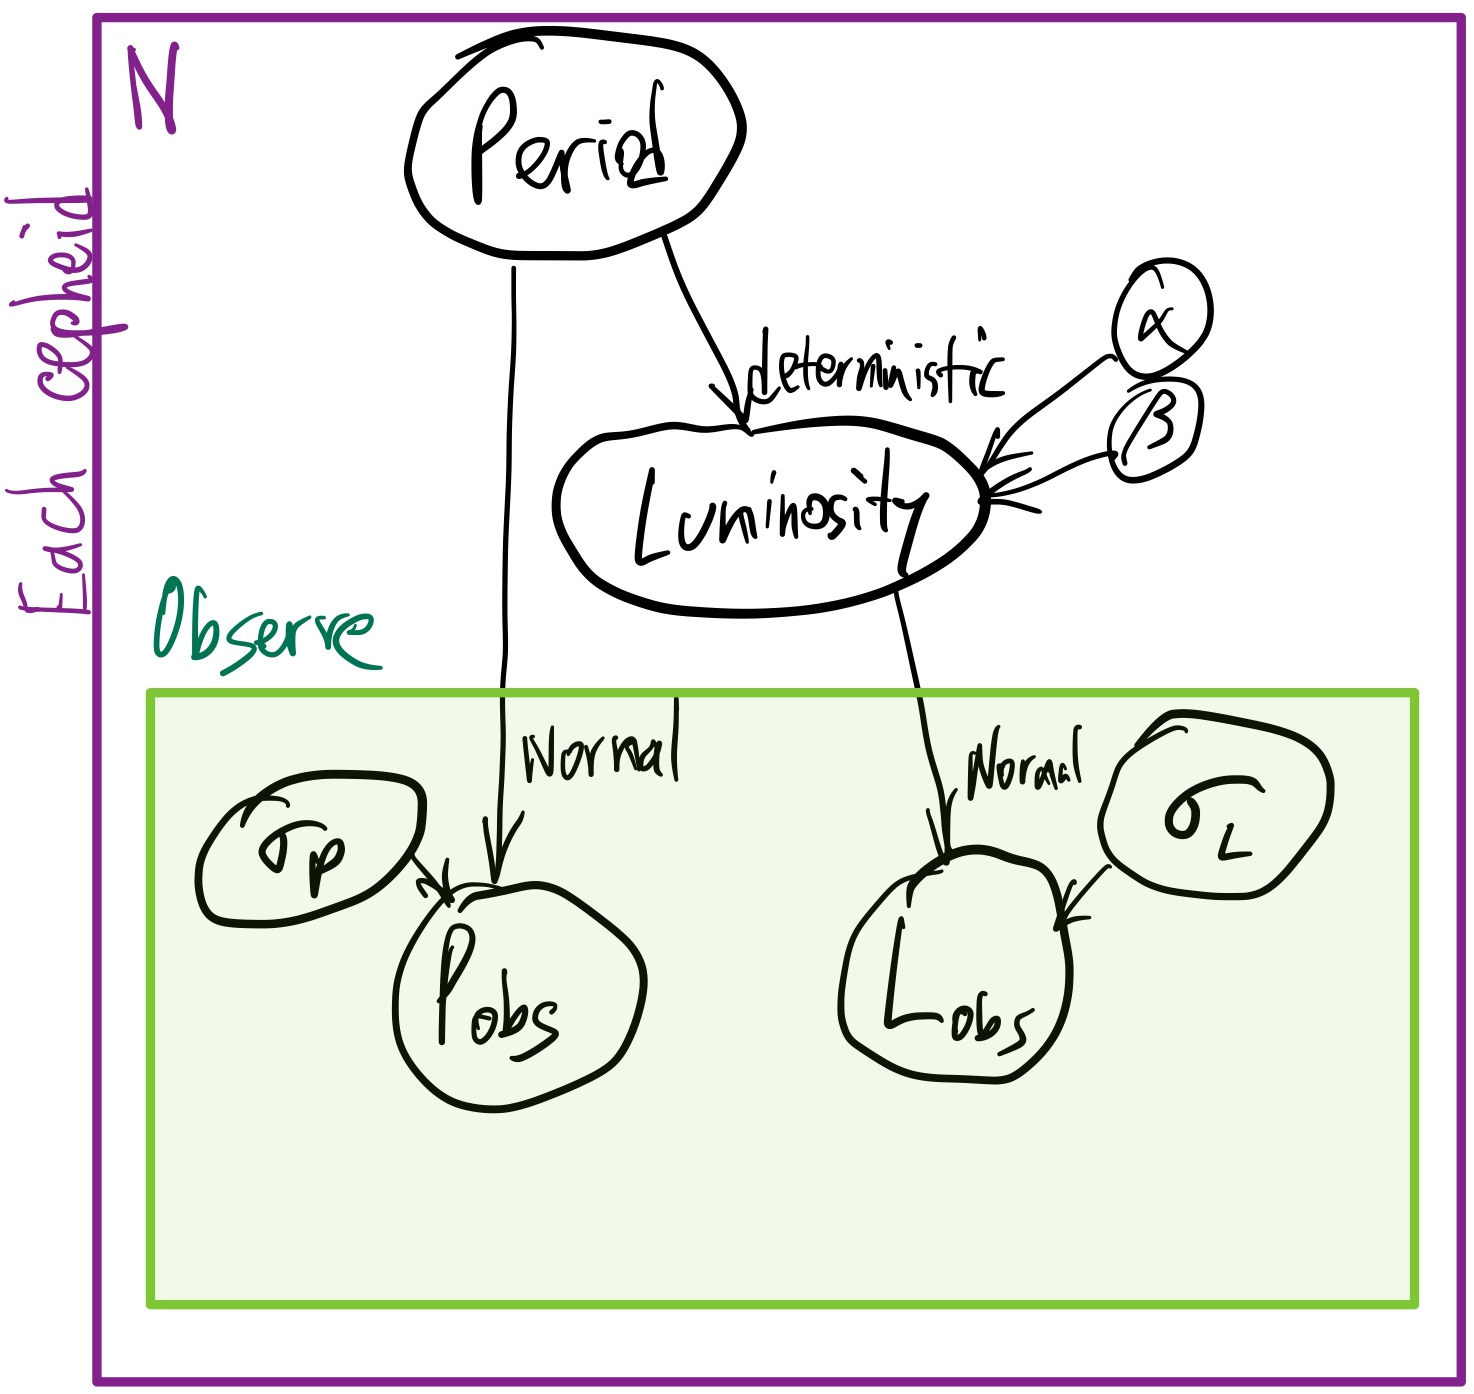 N
Period
Each cepheid
α
deterministic
β
Luminosity
Observe
Normal
Normal
σP
σL
Pobs
Lobs